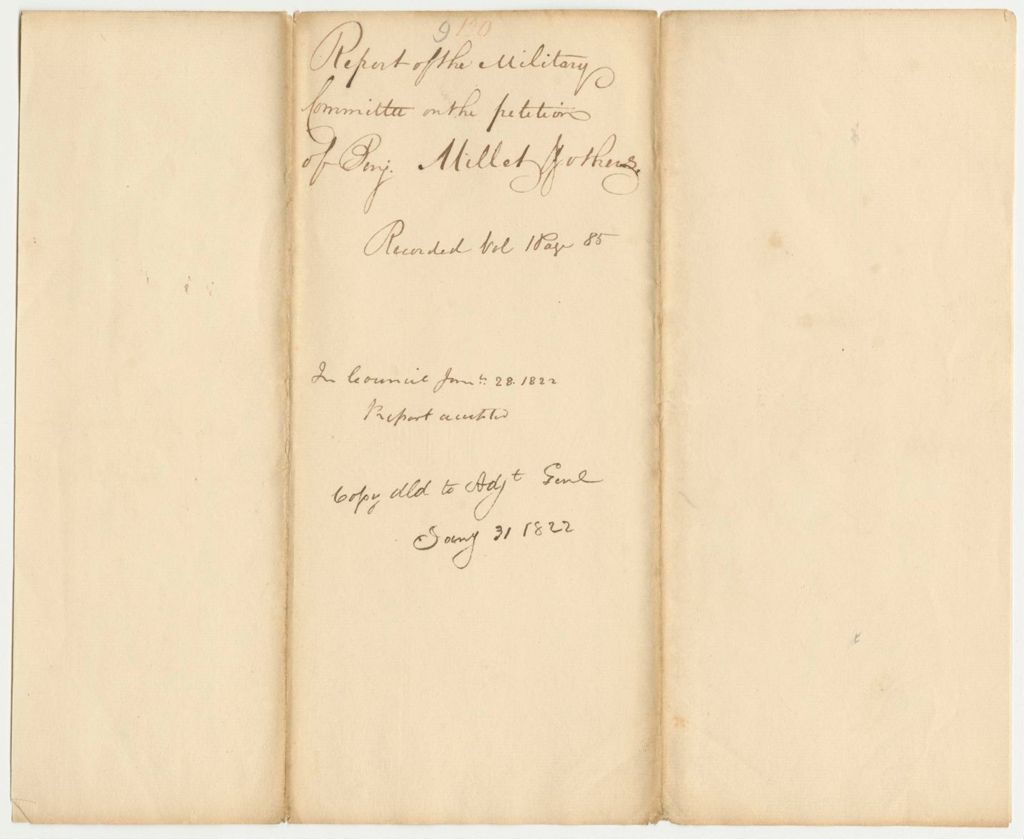 9 120
Report of the Military
Committee on the petition
of Benj. Millet & others
Recorded Vol 1 Page 85
In Council Jany. 28. 1822
Report accepted
Copy dld to Adjt Genl
Jany 31 1822